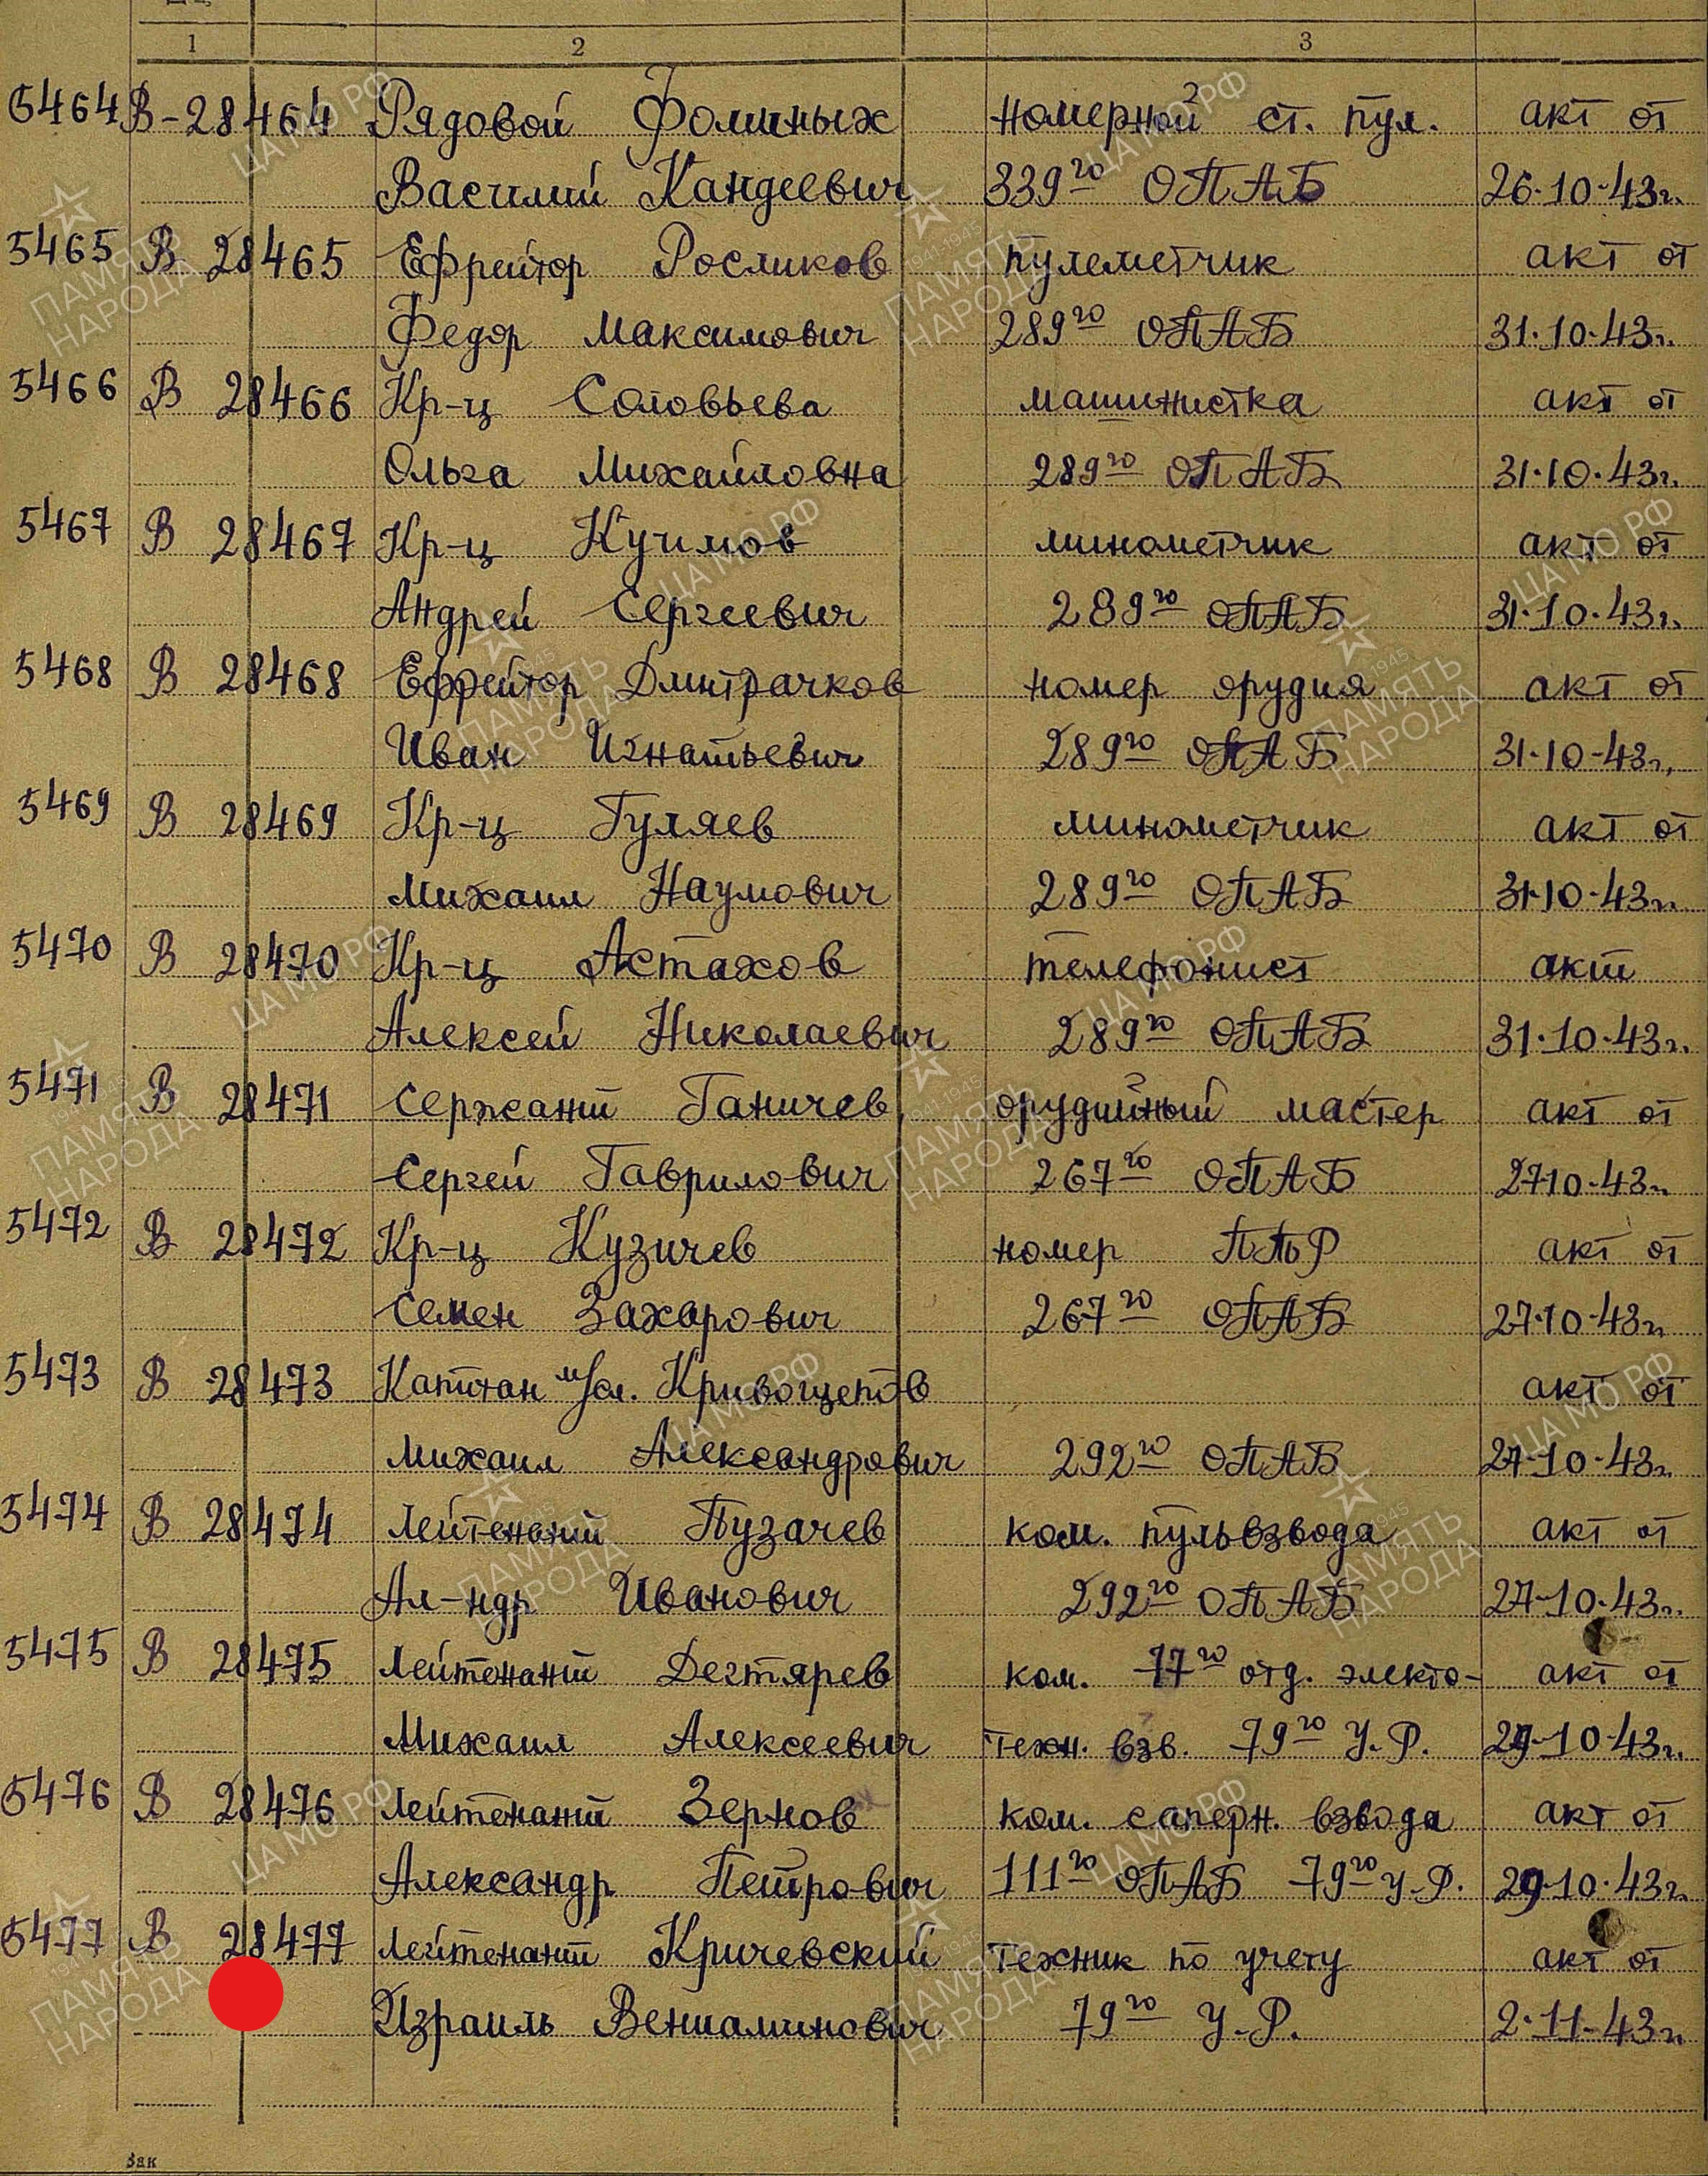 1 2 3
5464 В-28464 Рядовой Фоминых номерной ст. пул. акт от
Василий Кандеевич 339го ОПАБ 26-10-43г.
5465 В 28465 Ефрейтор Росликов пулеметчик акт от
Федор Максимович 289го ОПАБ 31.10.43г.
5466 В 28466 Кр-ц Соловьева машинистка акт от
Ольга Михайловна 289го ОПАБ 31.10.43г.
5467 В 28467 Кр-ц Кучимов минометчик акт от
Андрей Сергеевич 289го ОПАБ 31.10.43г.
5468 В 28468 Ефрейтор Дмитрачков номер орудия акт от
Иван Игнатьевич 289го ОПАБ 31-10-43г.
5469 В 28469 Кр-ц Гуляев минометчик акт от
Михаил Наумович 289го ОПАБ 31-10-43г.
5470 В 28470 Кр-ц Астахов телефонист акт
Алексей Николаевич 289го ОПАБ 31.10.43г.
5471 В 28471 Сержант Ганичев орудийный мастер акт от
Сергей Гаврилович 267го ОПАБ 27-10-43г.
5472 В 28472 Кр-ц Кузичев номер ПТР акт от
Семен Захарович 267го ОПАБ 27.10-43г.
5473 В 28473 Капитан м/сл. Кривощепов акт от
Михаил Александрович 292го ОПАБ 27-10-43г.
5474 В 28474 Лейтенант Пузачев ком. пульвзвода акт от
Ал-ндр Иванович 292го ОПАБ 27-10-43г.
5475 В 28475 Лейтенант Дегтярев ком. 77го отд. электо- акт от
Михаил Алексеевич техн. взв. 79го У.Р. 29-10-43г.
5476 В 28476 Лейтенант Зернов ком. саперн. взвода акт от
Александр Петрович 111го ОПАБ 79го У.Р. 29-10.43г.
5477 В 28477 Лейтенант Кричевский техник по учету акт от
Израиль Вениаминович 79го У.Р. 2.11-43г.
Зак